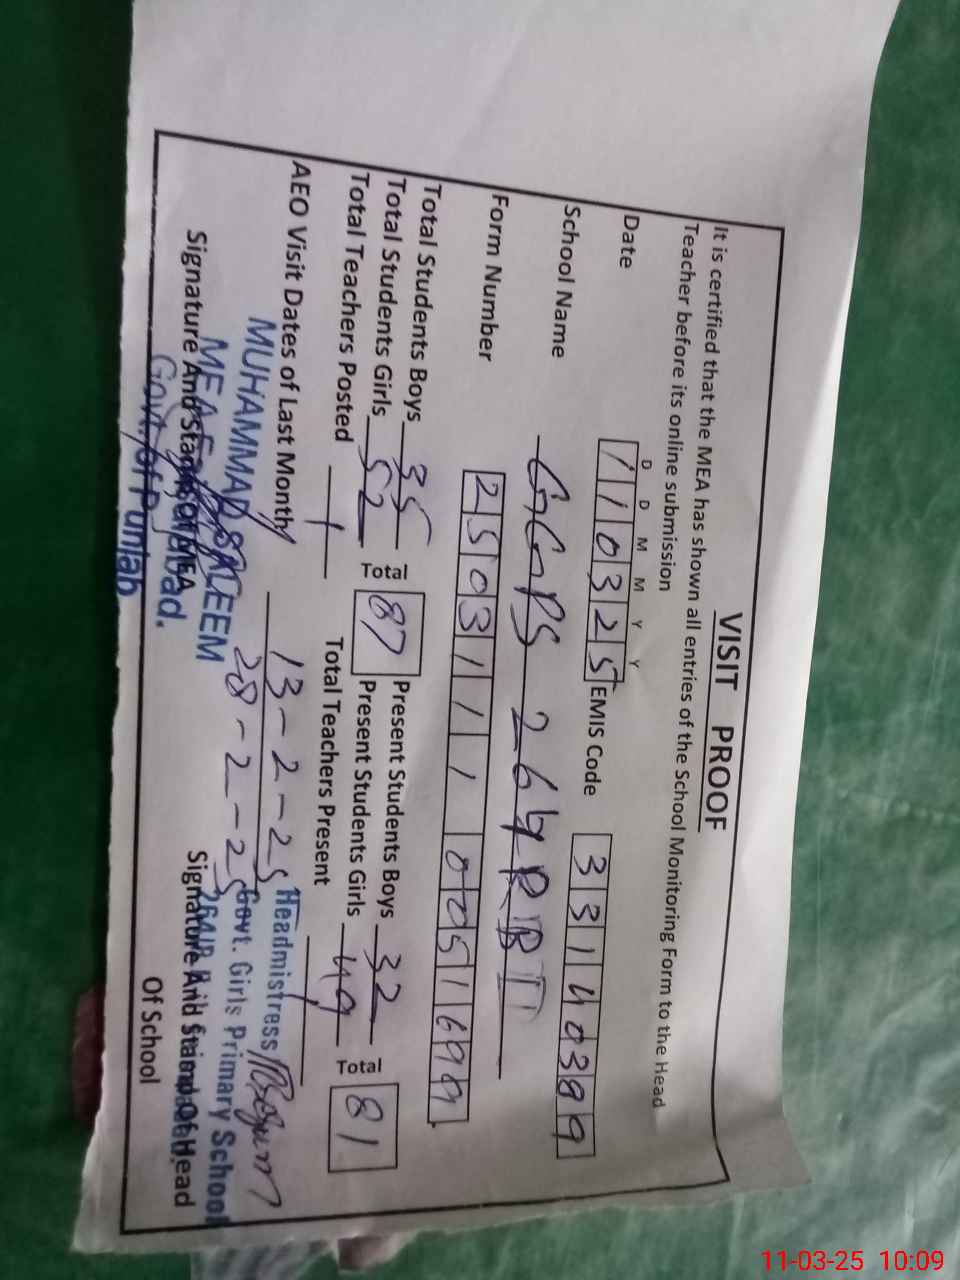 VISIT PROOF
It is certified that the MEA has shown all entries of the School Monitoring Form to the Head
Teacher before its online submission
D D M M Y Y
Date 110325 EMIS Code 33140389
School Name GGPS 264 RB I
Form Number 25031111 0051699
Total Students Boys 35 Present Students Boys 32
Total Students Girls 52 Total 87 Present Students Girls 49 Total 81
Total Teachers Posted 1 Total Teachers Present 1
AEO Visit Dates of Last Month 13-2-25
28-2-25
MUHAMMAD SALEEM
MEA
Govt. of Punjab
Signature And Stamp Of MEA
Headmistress
Govt. Girls Primary School
Signature And Stamp Of Head
Of School
11-03-25 10:09